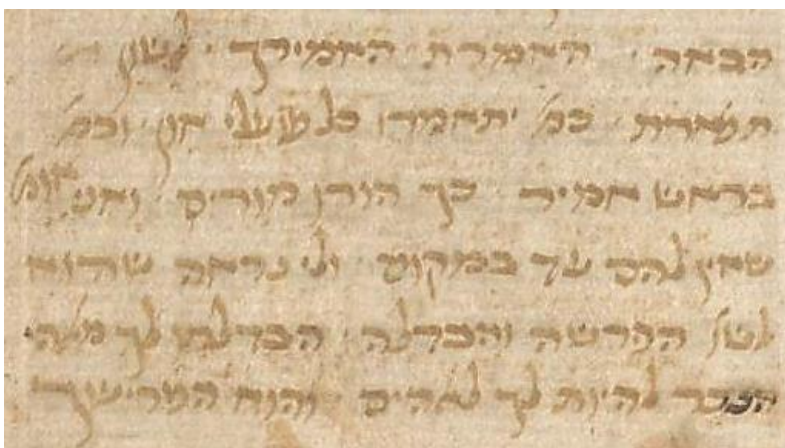 הבאה · האמרת האמירך · לשון
תפארת · כמ' יתאמרו כל פועלי און · וכמ'
בראש אמיר · כך הורו מורים · ואני אומ'
שאין להם עד במקום · ולי נראה שהוא
לשון הפרשה והבדלה · הבדלתו לך מאלהי
הנכר להיות לך לאהים והוא הפרישך